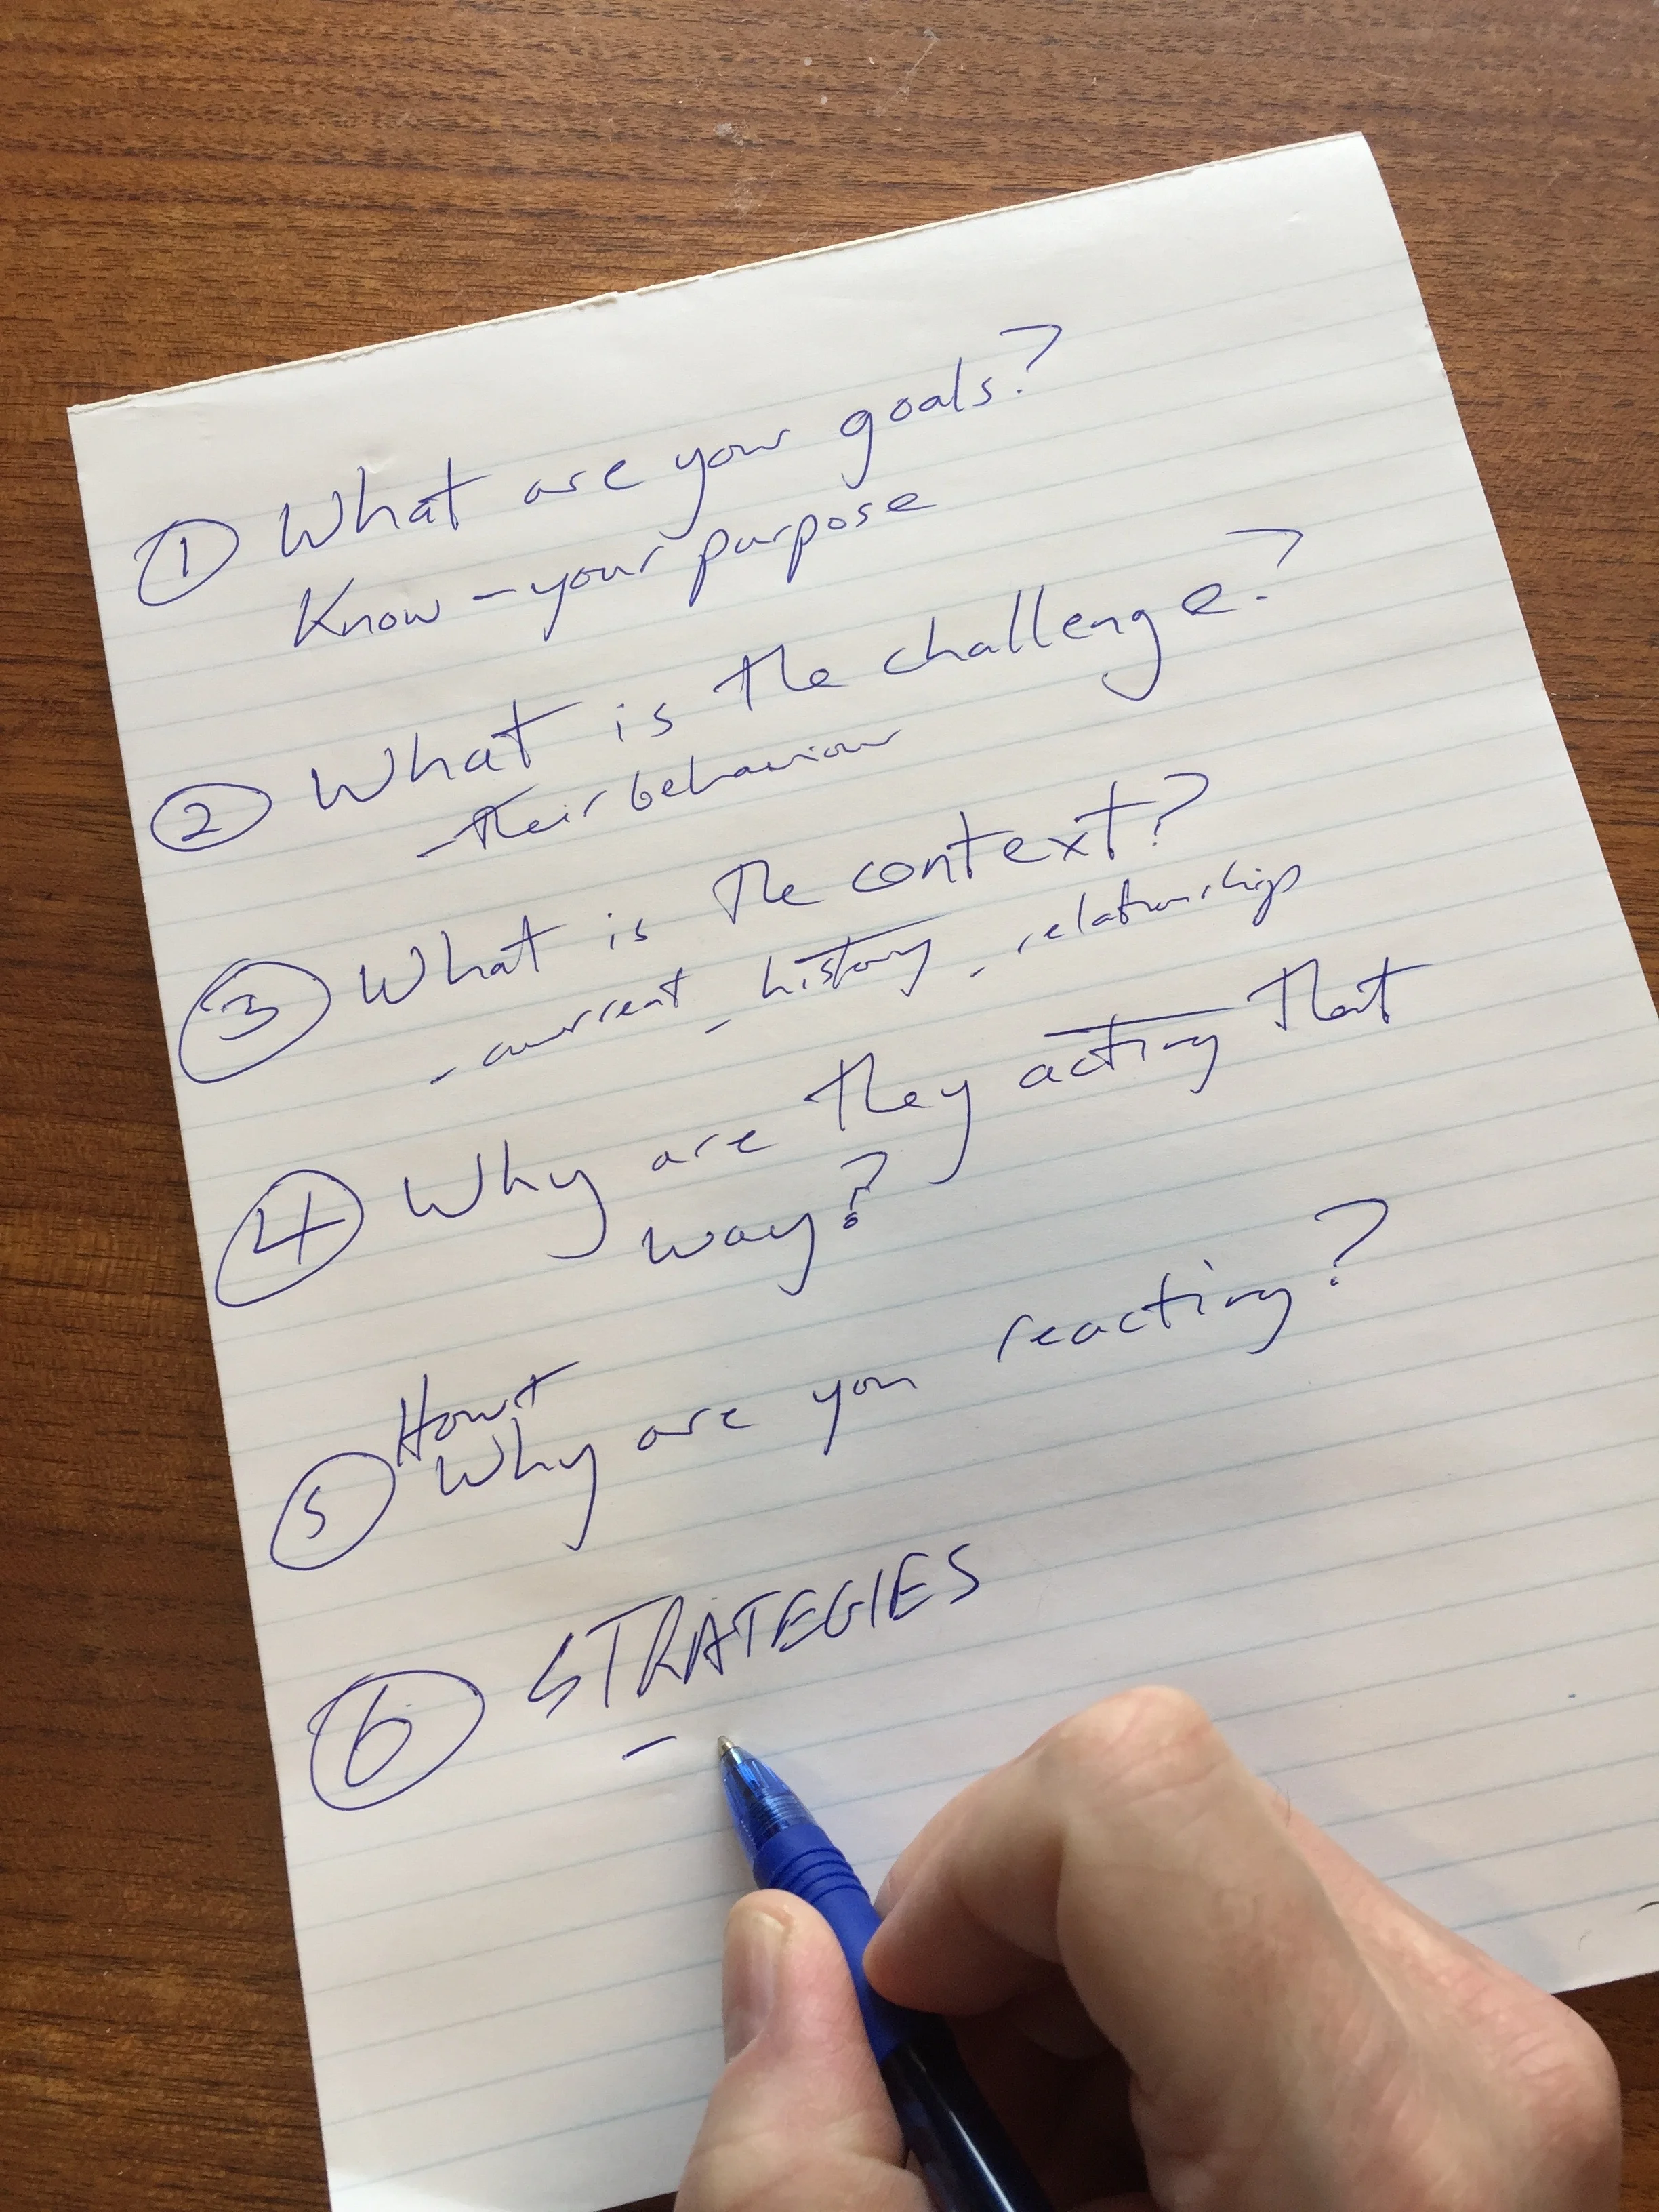 ① What are your goals?
Know - your purpose
② What is the challenge?
- their behaviour
③ What is the context?
- current - history - relationships
④ Why are they acting that
way?
How +
⑤ Why are you reacting?
⑥ STRATEGIES
-